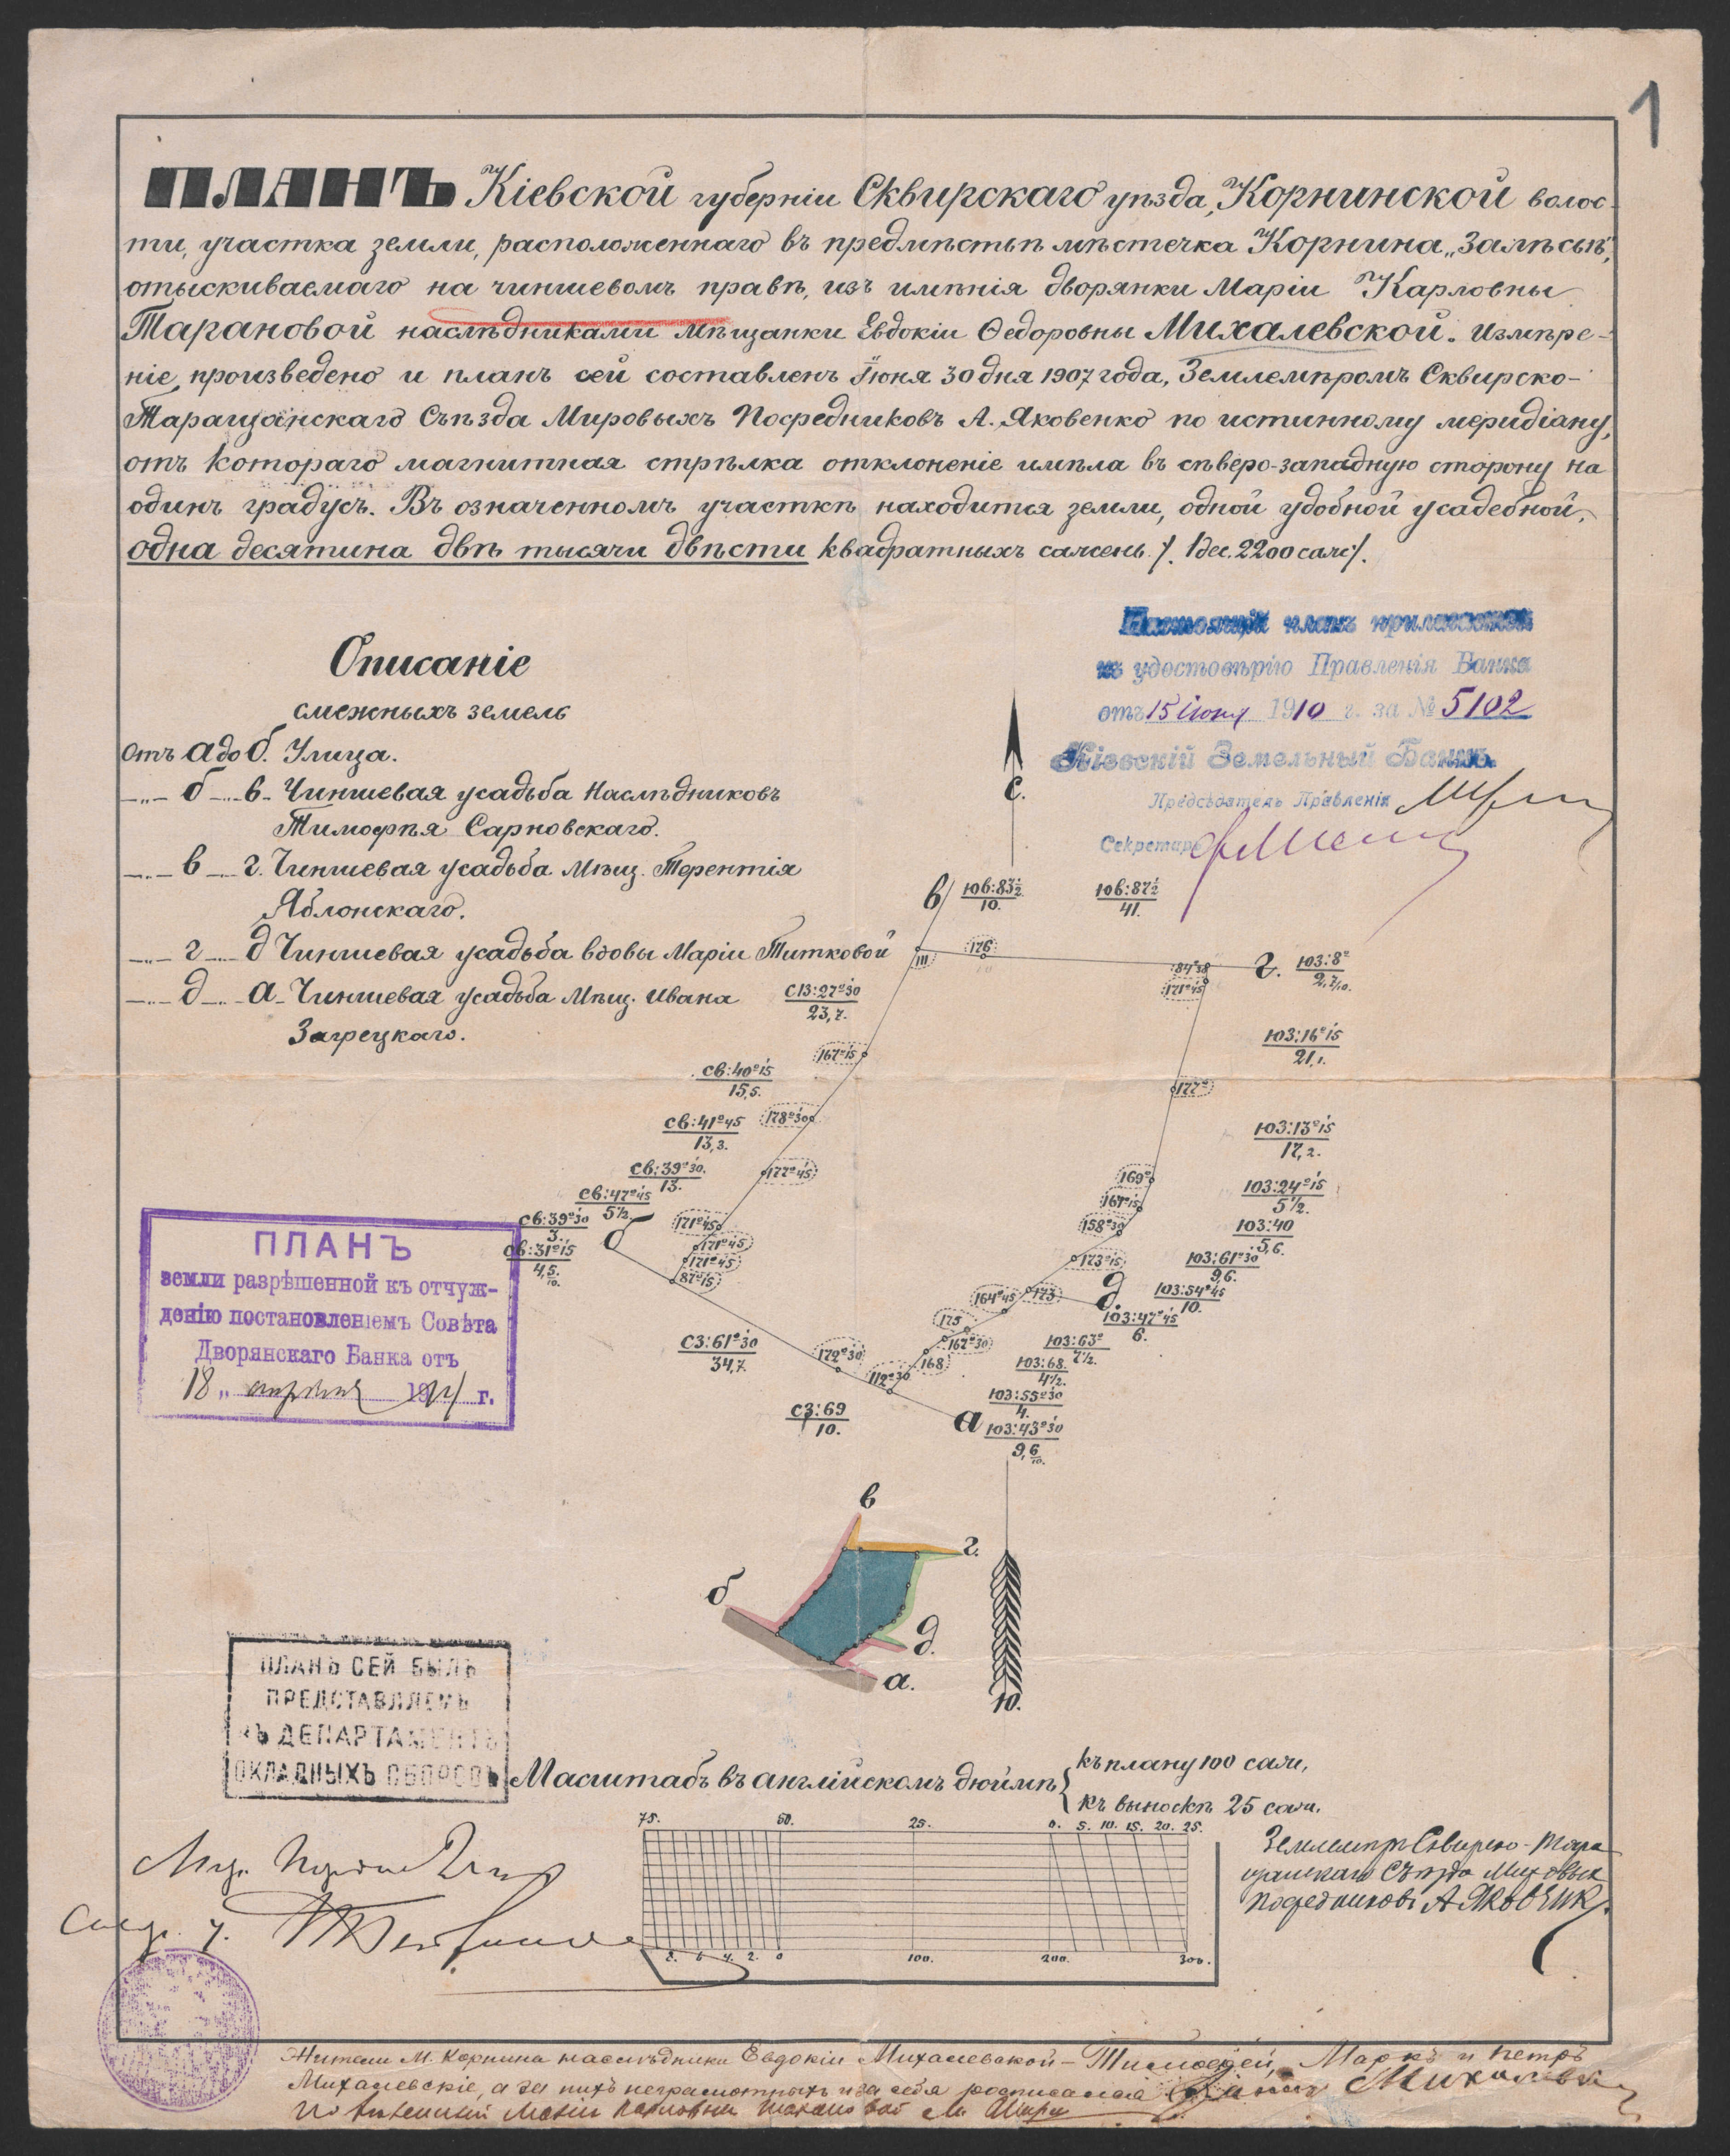 1
ПЛАНЪ Кіевской губерніи Сквирскаго уѣзда, Корнинской волос-
ти, участка земли, расположеннаго въ предмѣстьѣ мѣстечка Корнина „Залѣсьѣ",
отыскиваемаго на чиншевомъ правѣ, изъ имѣнія дворянки Маріи Карловны
Тарановой наслѣдниками мѣщанки Евдокіи Ѳедоровны Михалевской. Измѣре-
ніе произведено и планъ сей составленъ Іюня 30 дня 1907 года, Землемѣромъ Сквирско-
Таращанскаго Съѣзда Мировыхъ Посредниковъ А. Яковенко по истинному меридіану,
отъ котораго магнитная стрѣлка отклоненіе имѣла въ сѣверо-западную сторону на
одинъ градусъ. Въ означенномъ участкѣ находится земли, одной удобной усадебной,
одна десятина двѣ тысячи двѣсти квадратныхъ сажень /. 1 дес. 2200 саж /.
Настоящій планъ приложенъ
къ удостовѣрію Правленія Банка
отъ 15 іюня 1910 г. за № 5102
Кіевскій Земельный Банкъ
Предсѣдатель Правленія
Секретарь
Описаніе
смежныхъ земель
отъ а до б. Улица.
—„— б —„— в. Чиншевая усадьба Наслѣдниковъ
Тимофѣя Сарновскаго.
—„— в —„— г. Чиншевая усадьба Мѣщ. Терентія
Яблонскаго.
—„— г —„— д Чиншевая усадьба вдовы Маріи Титковой
—„— д —„— а. Чиншевая усадьба Мѣщ. Ивана
Загрецкаго.
С.
в
ЮВ:83½
10.
ЮВ:87½
41.
111
176
84°38
171°45
г.
ЮЗ:8°
2,7/10.
СВ:27°30
23,7.
167°15
ЮЗ:16°15
21,1.
СВ:40°15
15,5.
177°
СВ:41°45
13,3.
178°30
ЮЗ:13°15
17,2.
СВ:39°30.
13.
177°45
169°
СВ:47°45
5½
167°15
ЮЗ:24°15
5½.
СВ:39°30
3.
б
171°45
158°30
ЮЗ:40
5,6.
СВ:31°15
4,5/10.
171°45
171°45
87°15
173°15
ЮЗ:61°30
9,6.
173
д.
ЮЗ:54°45
10.
164°45
ЮЗ:47°45
6.
175
СЗ:61°30
34,7
167°30
ЮЗ:63°
7½.
172°30
168
ЮЗ:68.
4½.
112°30
ЮЗ:55°30
4.
СЗ:69
10.
а
ЮЗ:43°30
9,6/10.
ПЛАНЪ
земли разрѣшенной къ отчуж-
денію постановленіемъ Совѣта
Дворянскаго Банка отъ
18 „ апрѣля 1911 г.
в
г.
б
д.
а.
Ю.
ПЛАНЪ СЕЙ БЫЛЪ
ПРЕДСТАВЛЯЕМЪ
ВЪ ДЕПАРТАМЕНТЪ
ОКЛАДНЫХЪ СБОРОВЪ
Масштабъ въ англійскомъ дюймѣ { къ плану 100 саж.
къ выноскѣ 25 саж.
75. 50. 25. 0. 5. 10. 15. 20. 25.
8. 6 4. 2. 0 100. 200. 300.
Землемѣръ Сквирско-Тара
щанскаго Съѣзда Мировых
Посредниковъ А Яковенк
Жители м. Корнина наслѣдники Евдокіи Михалевской – Тимофей, Маркъ и Петръ
Михалевскіе, а за нихъ неграмотныхъ и за себя росписался Михалевск
По Маріи Карловны Тарановой